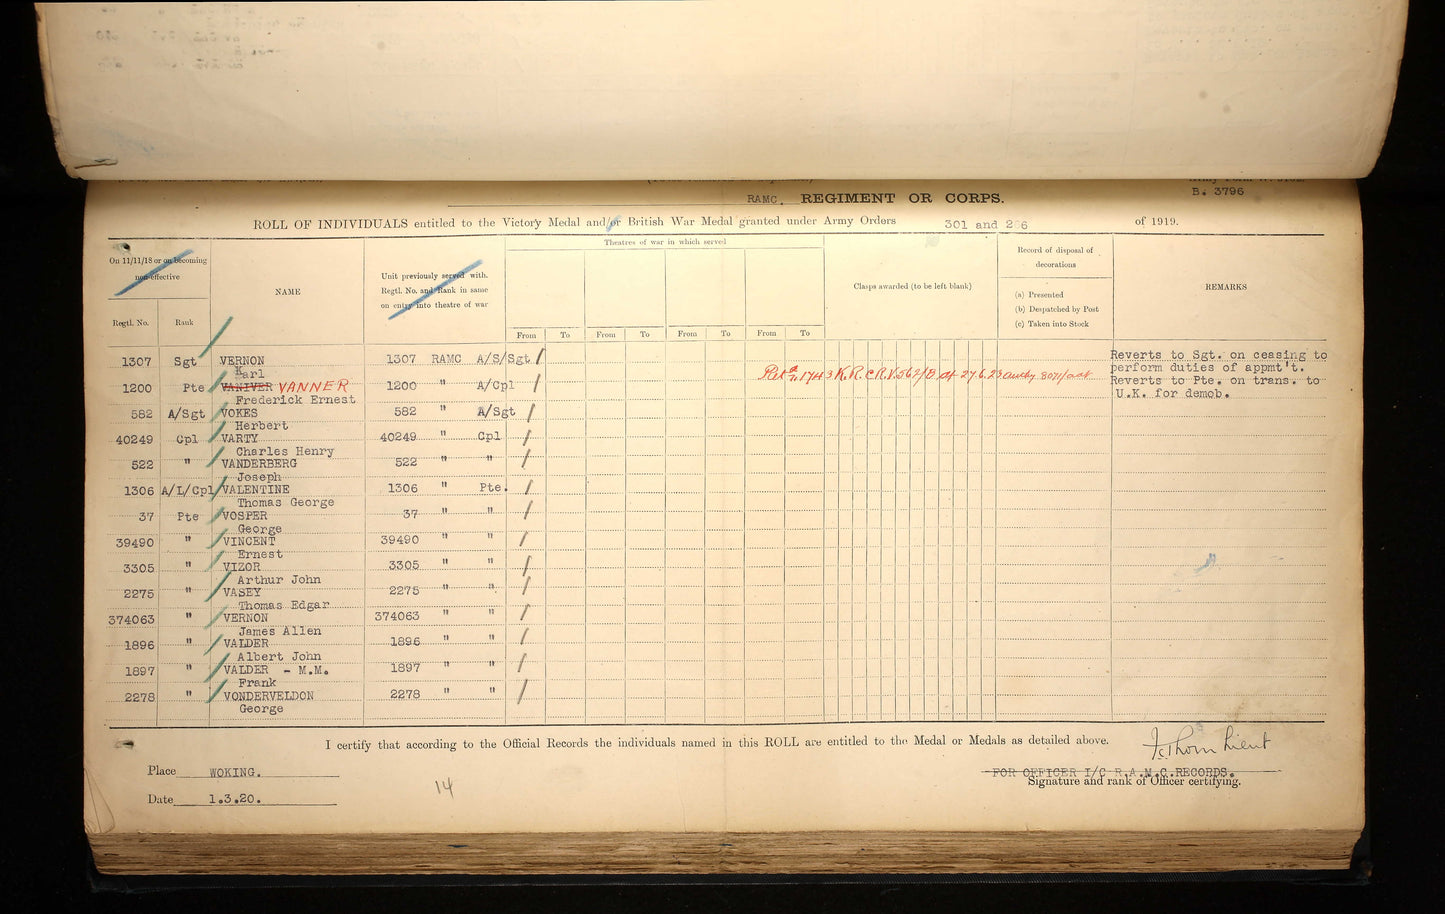 B. 3796
RAMC. REGIMENT OR CORPS.
ROLL OF INDIVIDUALS entitled to the Victory Medal and/or British War Medal granted under Army Orders 301 and 266 of 1919.
On 11/11/18 or on becoming non-effective
Regtl. No. Rank
NAME
Unit previously served with. Regtl. No. and Rank in same on entry into theatre of war
Theatres of war in which served
From To From To From To From To
Clasps awarded (to be left blank)
Record of disposal of decorations
(a) Presented
(b) Despatched by Post
(c) Taken into Stock
REMARKS
1307 Sgt VERNON 1307 RAMC A/S/Sgt Reverts to Sgt. on ceasing to
Karl perform duties of appmt't.
1200 Pte VANIVER VANNER 1200 " A/Cpl K.R. Reverts to Pte. on trans. to
Frederick Ernest U.K. for demob.
582 A/Sgt VOKES 582 " A/Sgt
Herbert
40249 Cpl VARTY 40249 " Cpl
Charles Henry
522 " VANDERBERG 522 " "
Joseph
1306 A/L/Cpl VALENTINE 1306 " Pte.
Thomas George
37 Pte VOSPER 37 " "
George
39490 " VINCENT 39490 " "
Ernest
3305 " VIZOR 3305 " "
Arthur John
2275 " VASEY 2275 " "
Thomas Edgar
374063 " VERNON 374063 " "
James Allen
1896 " VALDER 1896 " "
Albert John
1897 " VALDER - M.M. 1897 " "
Frank
2278 " VONDERVELDON 2278 " "
George
I certify that according to the Official Records the individuals named in this ROLL are entitled to the Medal or Medals as detailed above.
Thorn Lieut
Place WOKING.
FOR OFFICER I/C R.A.M.C. RECORDS.
Signature and rank of Officer certifying.
Date 1.3.20.
14